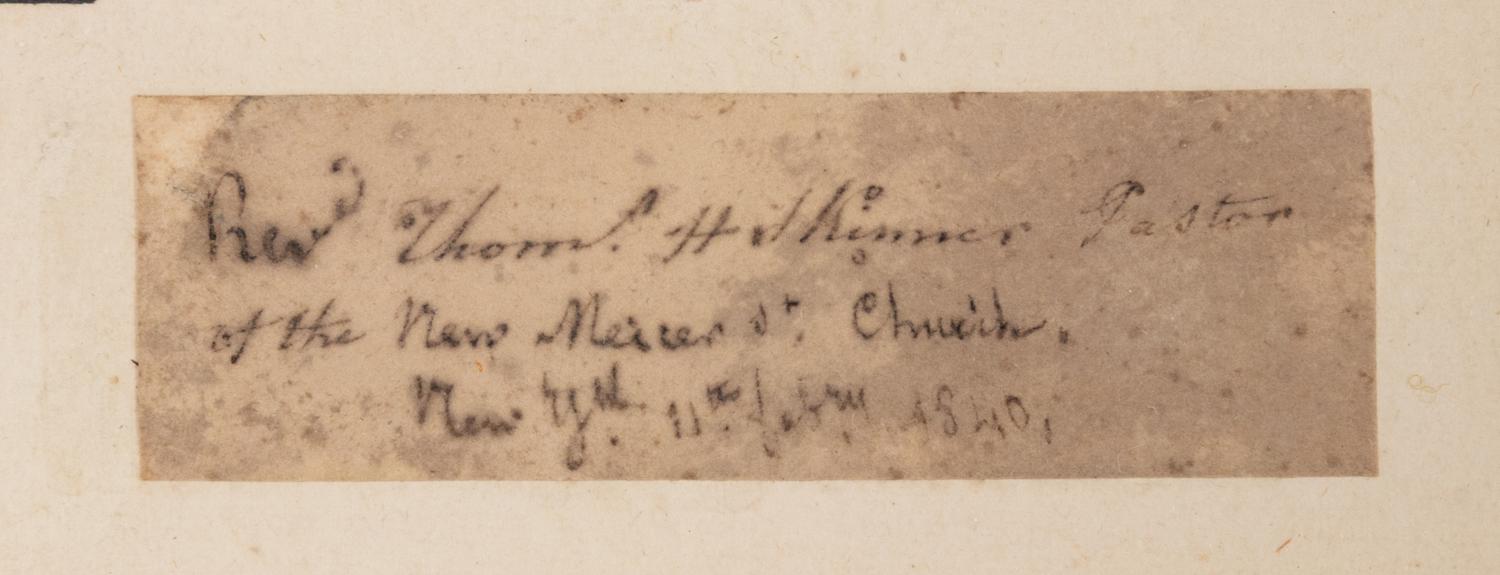 Rev^d Thom^s. H Skinner Pastor
of the New Mercer St. Church.
New Y^k. 11^th feb^ry 1840.